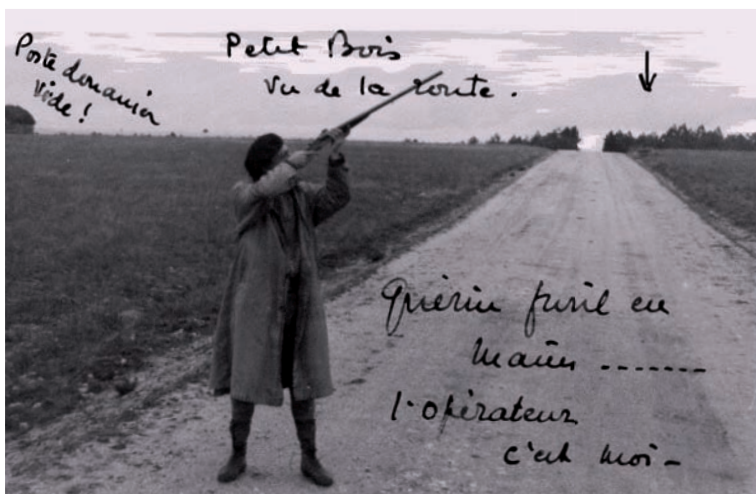 Poste douanier
vide !
Petit Bois
vu de la route .
Guérin fusil en
mains .......
l'opérateur
c'est moi -